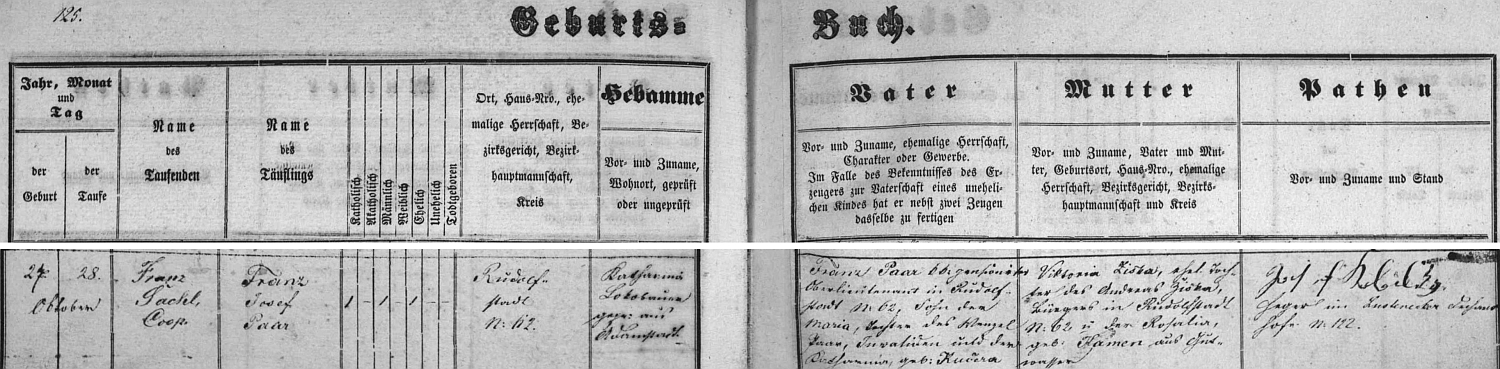 125.
Geburts=
Buch.
Jahr, Monat
und
Tag
der
Geburt
der
Taufe
Name
des
Taufenden
Name
des
Täuflings
Katholisch
Akatholisch
Männlich
Weiblich
Ehelich
Unehelich
Todtgeboren
Ort, Haus-Nro., ehe-
malige Herrschaft, Be-
zirksgericht, Bezirk-
hauptmannschaft,
Kreis
Hebamme
Vor- und Zuname,
Wohnort, geprüft
oder ungeprüft
Vater
Vor- und Zuname, ehemalige Herrschaft,
Charakter oder Gewerbe.
Im Falle des Bekenntnisses des Er-
zeugers zur Vaterschaft eines uneheli-
chen Kindes hat er nebst zwei Zeugen
dasselbe zu fertigen
Mutter
Vor- und Zuname, Vater und Mut-
ter, Geburtsort, Haus-Nro., ehemalige
Herrschaft, Bezirksgericht, Bezirks-
hauptmannschaft und Kreis
Pathen
Vor- und Zuname und Stand
27. 28.
Oktober
Franz
Coop.
Franz
Josef
Paar
1 - 1 - 1 - -
Rudolf-
stadt
N: 62.
Katharina
gepr: aus
Adamstadt
Franz Paar pensionirter
Oberlieutenant in Rudolf-
stadt N: 62, Sohn der
Maria, Tochter des Wenzel
Paar, Invaliden und der
Katharina, geb: Kučera
Viktoria Ziska, ehel. Toch-
ter des Andreas Ziska,
Bürgers in Rudolfstadt
N: 62 u der Rosalia,
geb: Kamen aus Gut-
wasser
Heger im
hofe N: 122.